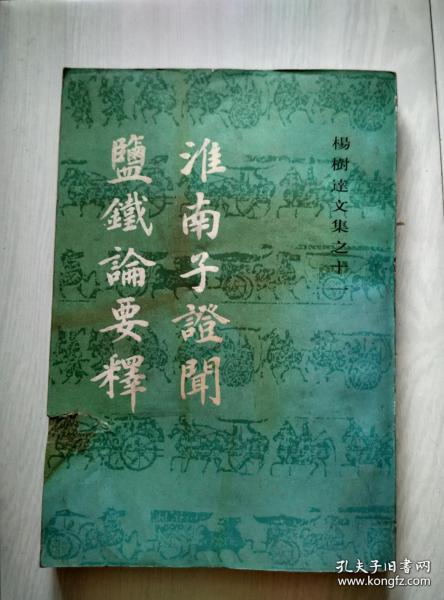 楊樹達文集之十一
淮南子證聞
鹽鐵論要釋
孔夫子旧书网
www.kongfz.com